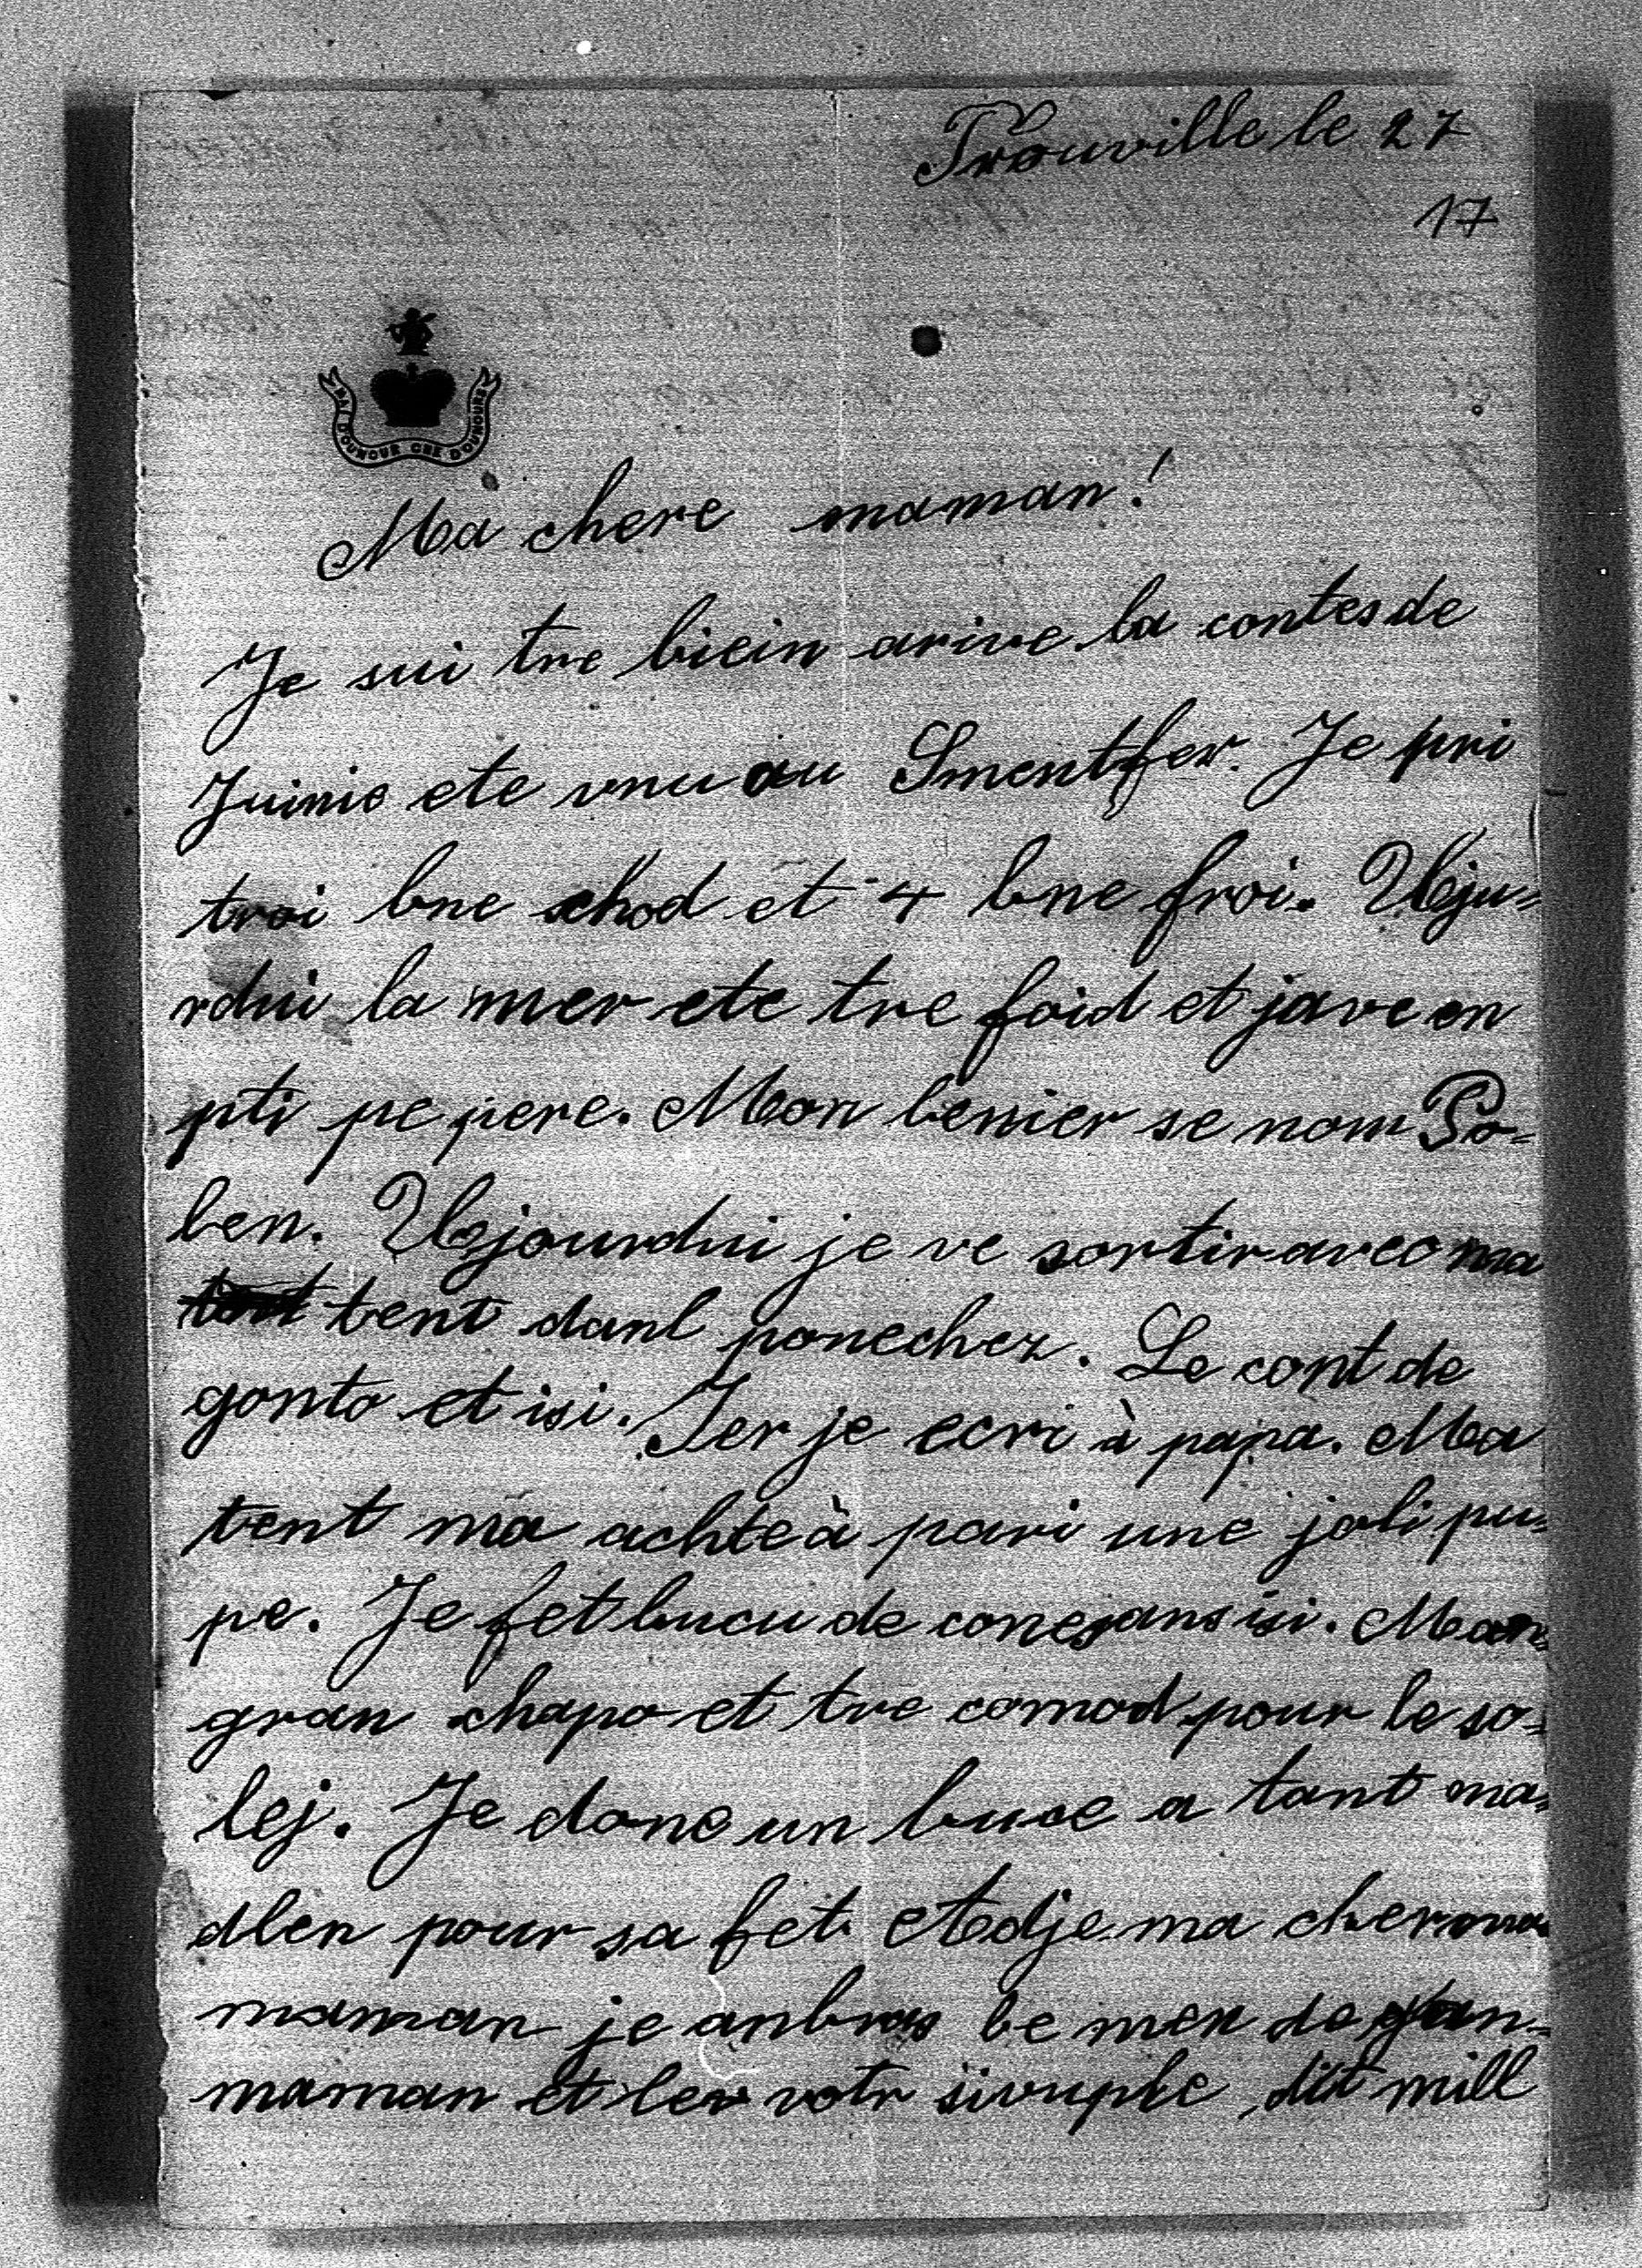 Trouville le 27
17
Ma chere maman!
Je sui tre biein arive la contesde
Juinie ete vnu au Smentfer. Je pri
troi bne chod et 4 bne froi. Uju=
rdui la mer ete tre foid et jave en
pti pe pere. Mon benier se nom Po=
ben. Ujourdui je ve sortir aveo ma
tent danl ponechez. Le cont de
gonto et isi. Ier je ecri à papa. Ma
tent ma achte à pari une joli pu=
pe. Je fet bucu de conesans isi. Mon
gran chapo et tre comod pour le so=
lej. Je done un buse a tant ma=
dlen pour sa fet Adje ma cher ma
maman je anbras be men de gran=
maman et les votr sivuple, dit mill